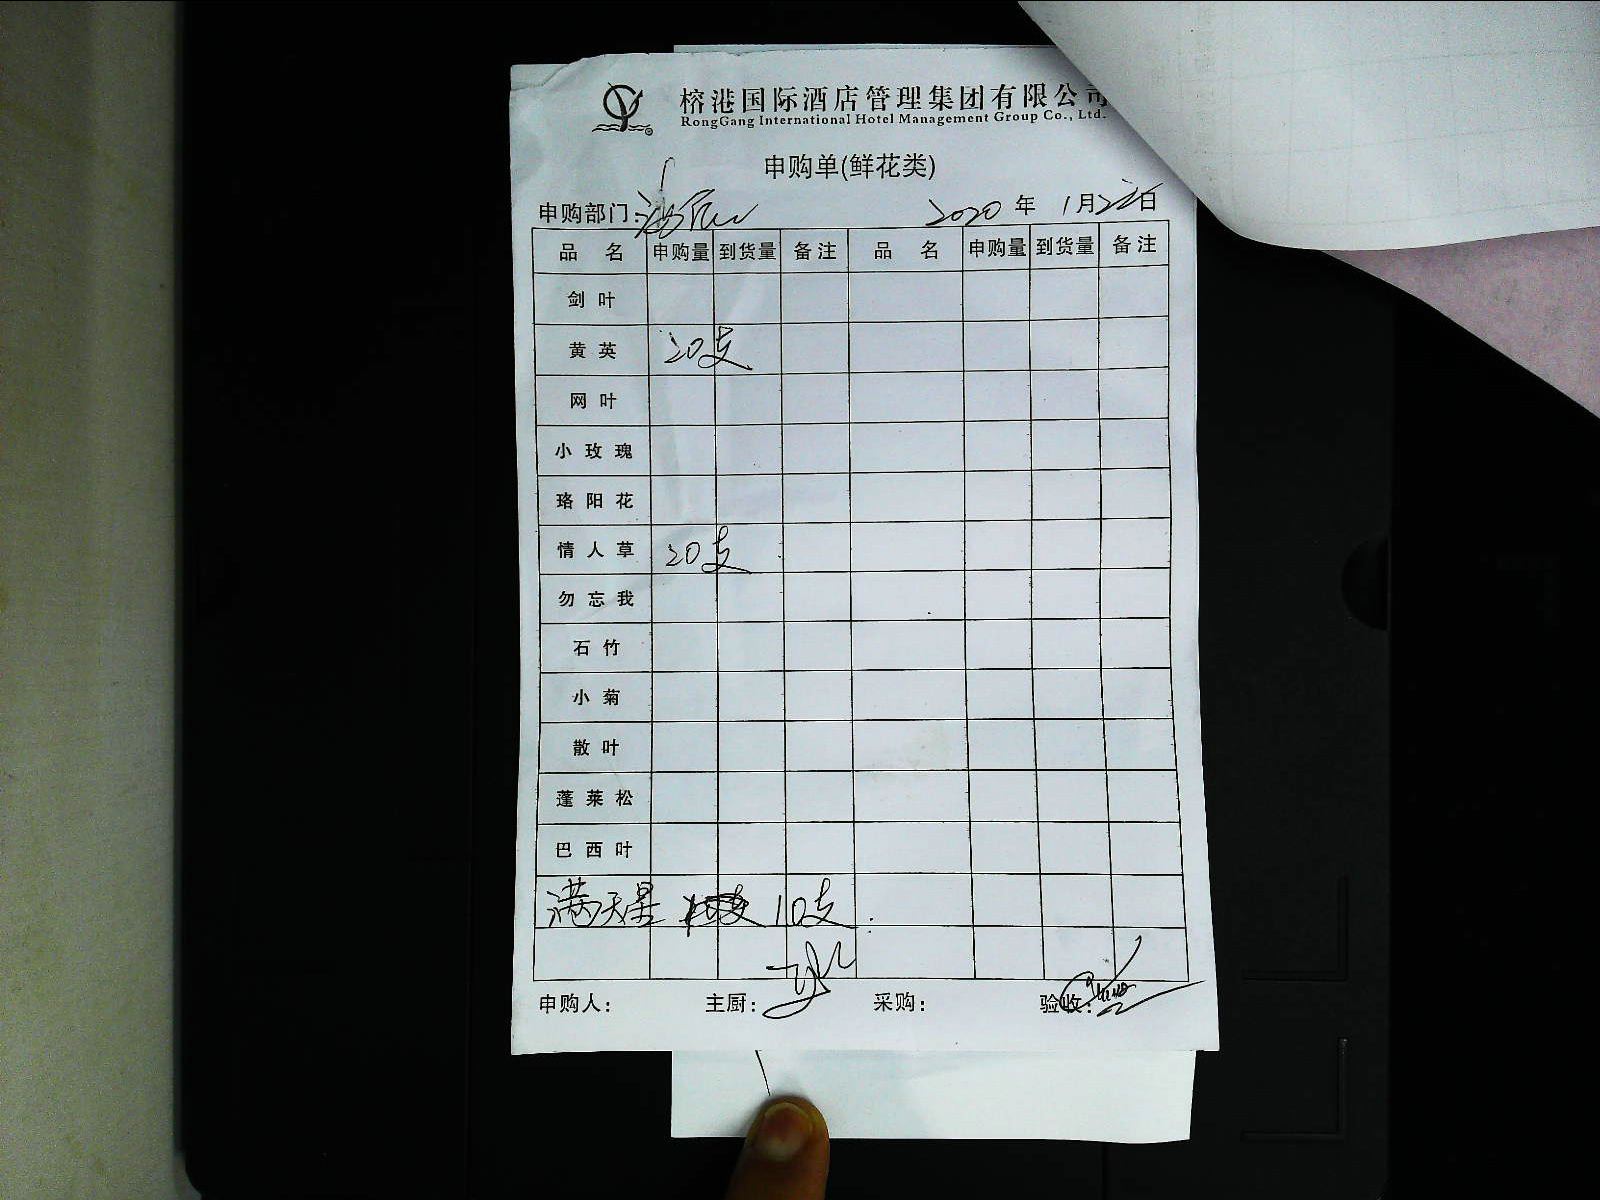 榕港国际酒店管理集团有限公司
RongGang International Hotel Management Group Co., Ltd.
申购单(鲜花类)
申购部门: 2020 年 1月 日
品 名 申购量 到货量 备注 品 名 申购量 到货量 备注
剑叶
黄英 20支
网叶
小玫瑰
珞阳花
情人草 20支
勿忘我
石竹
小菊
散叶
蓬莱松
巴西叶
满天星 10支
申购人: 主厨: 采购: 验收: